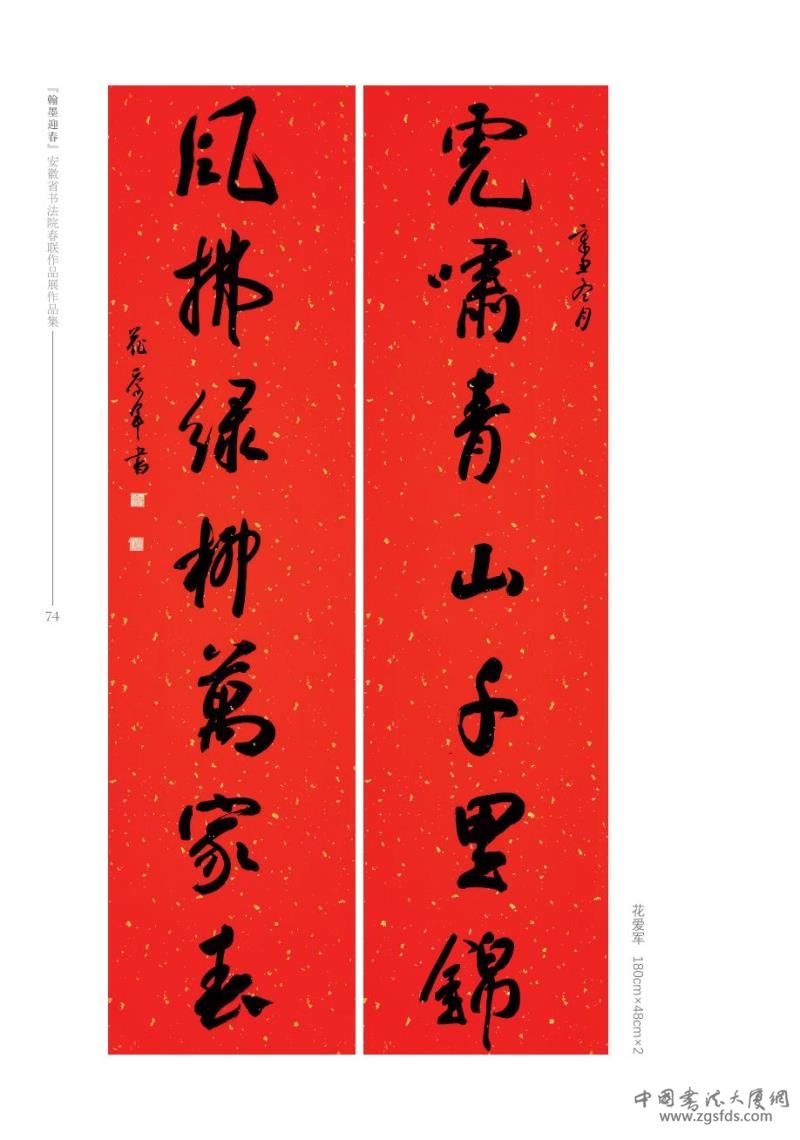 虎啸青山千里錦
辛丑冬月
風拂绿柳萬家春
花爱军书
『翰墨迎春』安徽省书法院春联作品展作品集
74
花爱军 180cm×48cm×2
中国書法大厦網
www.zgsfds.com